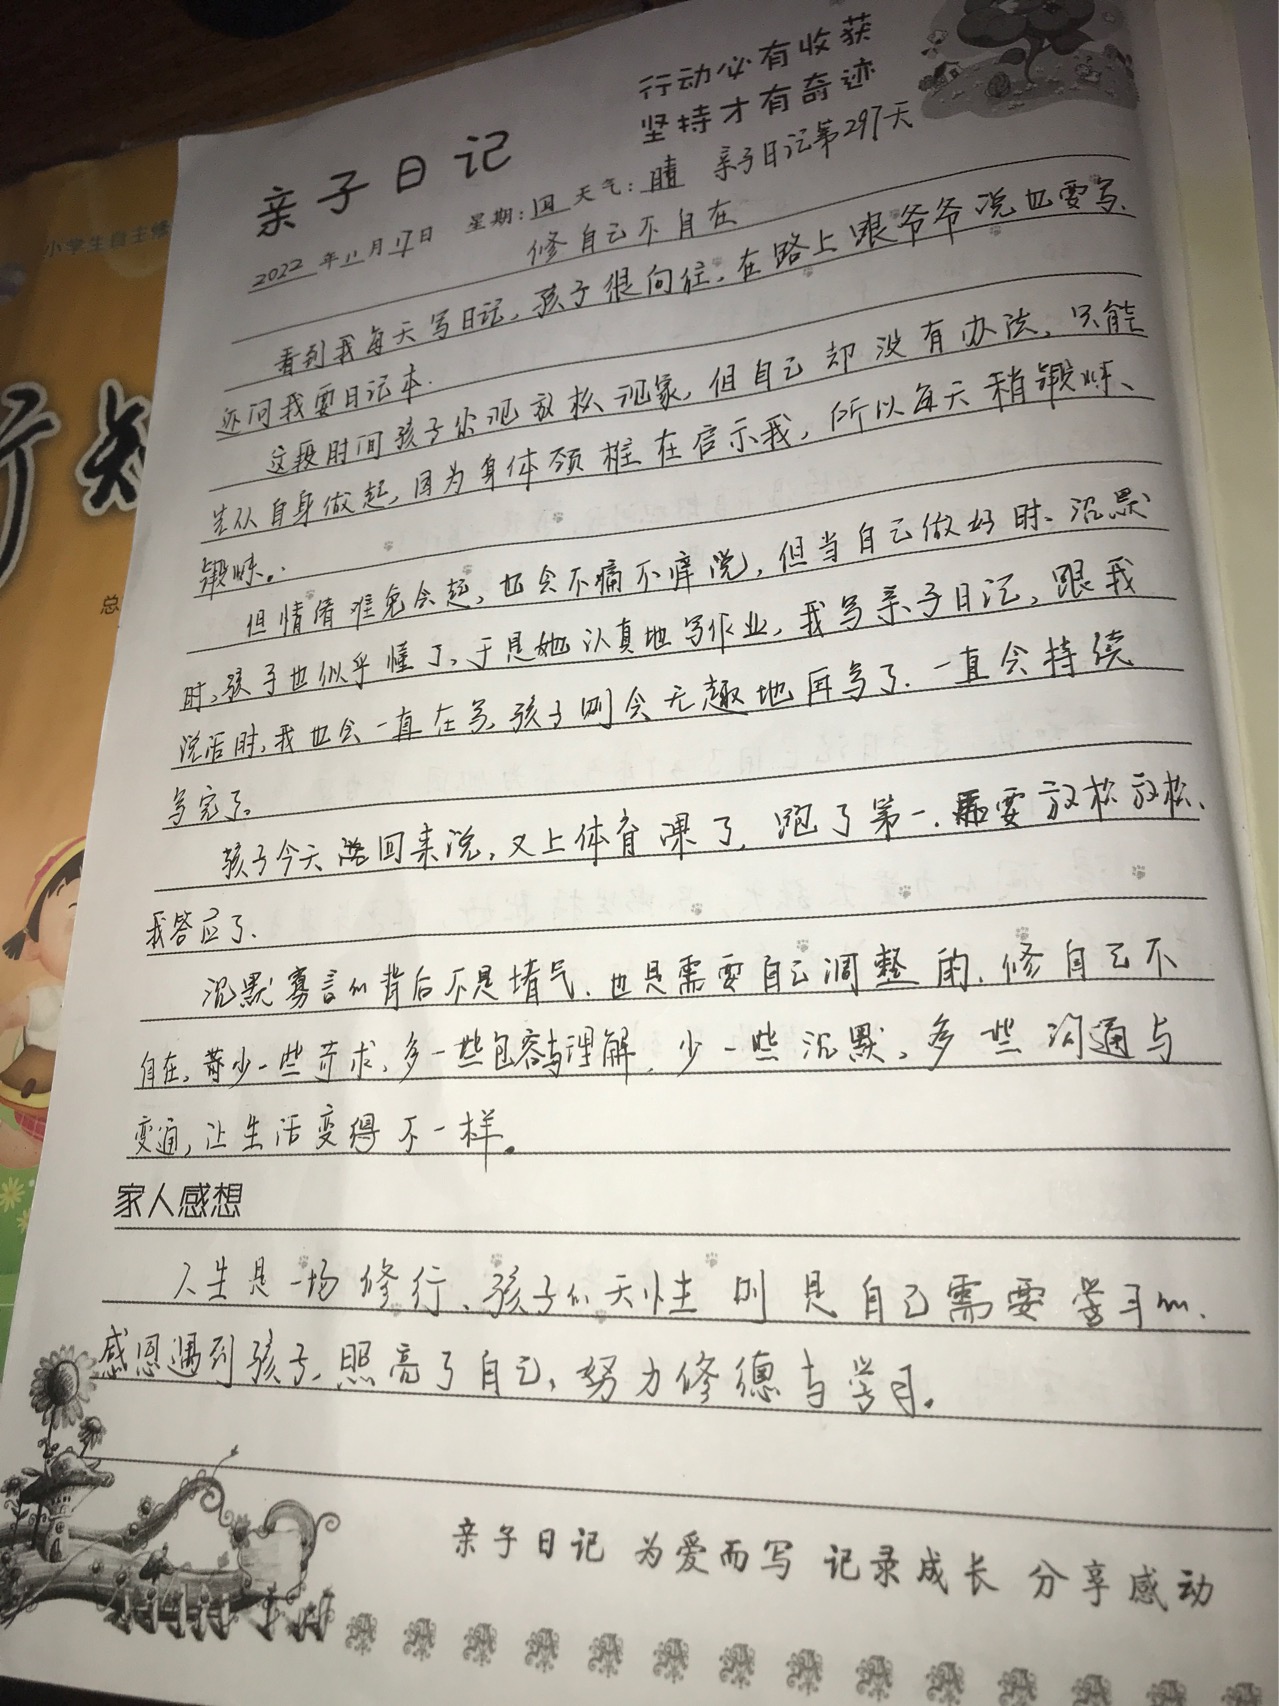 行动必有收获
坚持才有奇迹
亲子日记
2022年11月17日 星期:四 天气:晴 亲子日记第297天
修自己不自在
看到我每天写日记,孩子很向往,在路上跟爷爷说也要写.
还问我要日记本.
这段时间孩子出现放松现象,但自己却没有办法,只能
先从自身做起,因为身体颈椎在启示我,所以每天稍锻炼、
锻炼.
但情绪难免会起,也会不痛不痒说,但当自己做好时、沉默
时,孩子也似乎懂了,于是她认真地写作业,我写亲子日记,跟我
说话时,我也会一直在写,孩子则会无趣地再写了.一直会持续
写完了.
孩子今天回来说,又上体育课了,跑了第一.需要放松放松.
我答应了.
沉默寡言的背后不是堵气.也是需要自己调整的.修自己不
自在,少一些苛求,多一些包容与理解,少一些沉默,多些沟通与
变通,让生活变得不一样。
家人感想
人生是一场修行、孩子的天性则是自己需要学习的.
感恩遇到孩子,照亮了自己,努力修德与学习。
亲子日记 为爱而写 记录成长 分享感动
小学生自主修
总